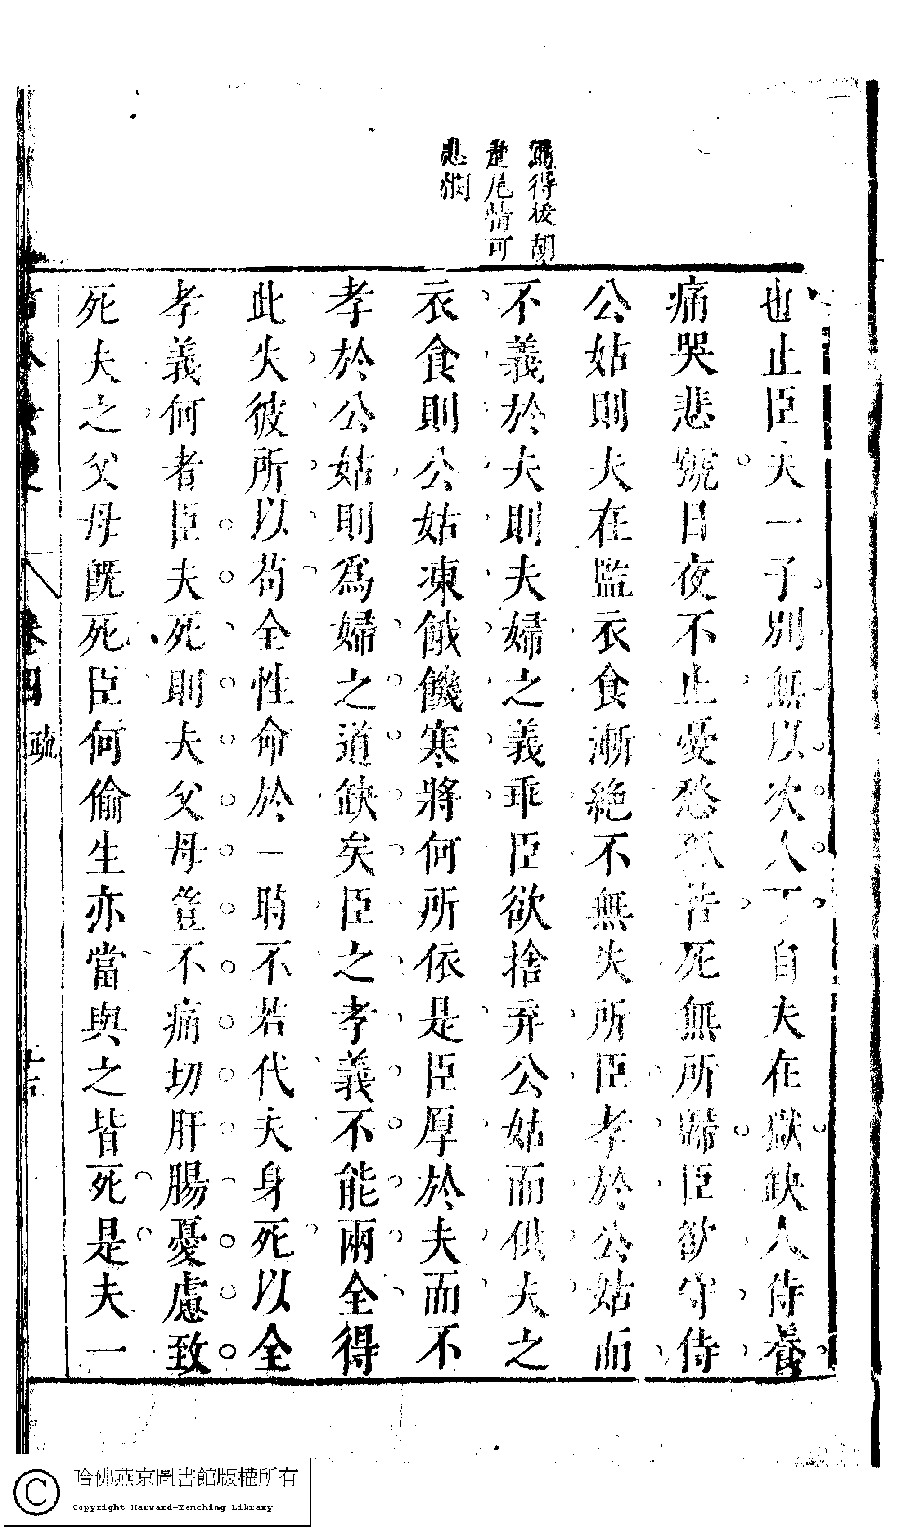 寫得後胡
疐尾情可
悲憫
也止臣夫一子別無以次人丁自夫在獄缺人侍養
痛哭悲號日夜不止憂愁孤苦死無所歸臣欲守侍
公姑則夫在監衣食漸絕不無失所臣孝於公姑而
不義於夫則夫婦之義乖臣欲捨弃公姑而供夫之
衣食則公姑凍餓饑寒將何所依是臣厚於夫而不
孝於公姑則爲婦之道缺矣臣之孝義不能兩全得
此失彼所以苟全性命於一時不若代夫身死以全
孝義何者臣夫死則夫父母豈不痛切肝腸憂慮致
死夫之父母旣死臣何偷生亦當與之皆死是夫一
古今女史
卷四
疏
哈佛燕京圖書館版權所有
Copyright Harvard-Yenching Library